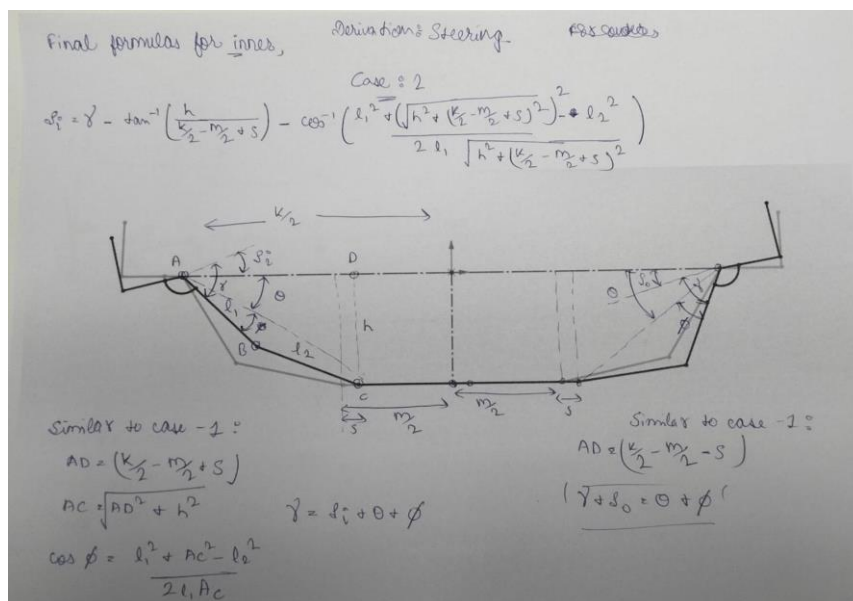 Final formulas for inner,
Derivation: Steering
Case: 2
δi = γ - tan⁻¹(h / (k/2 - m/2 + s)) - cos⁻¹((l₁² + (√(h² + (k/2 - m/2 + s)²))² - l₂²) / (2 l₁ √(h² + (k/2 - m/2 + s)²)))
k/2
A δi D
γ θ
l₁ φ
B l₂ h
C
θ δo γ
φ
s m/2 m/2 s
Similar to case -1:
AD = (k/2 - m/2 + s)
AC = √(AD² + h²)
γ = δi + θ + φ
cos φ = (l₁² + AC² - l₂²) / (2 l₁ AC)
Similar to case -1:
AD = (k/2 - m/2 - s)
(γ + δo = θ + φ)